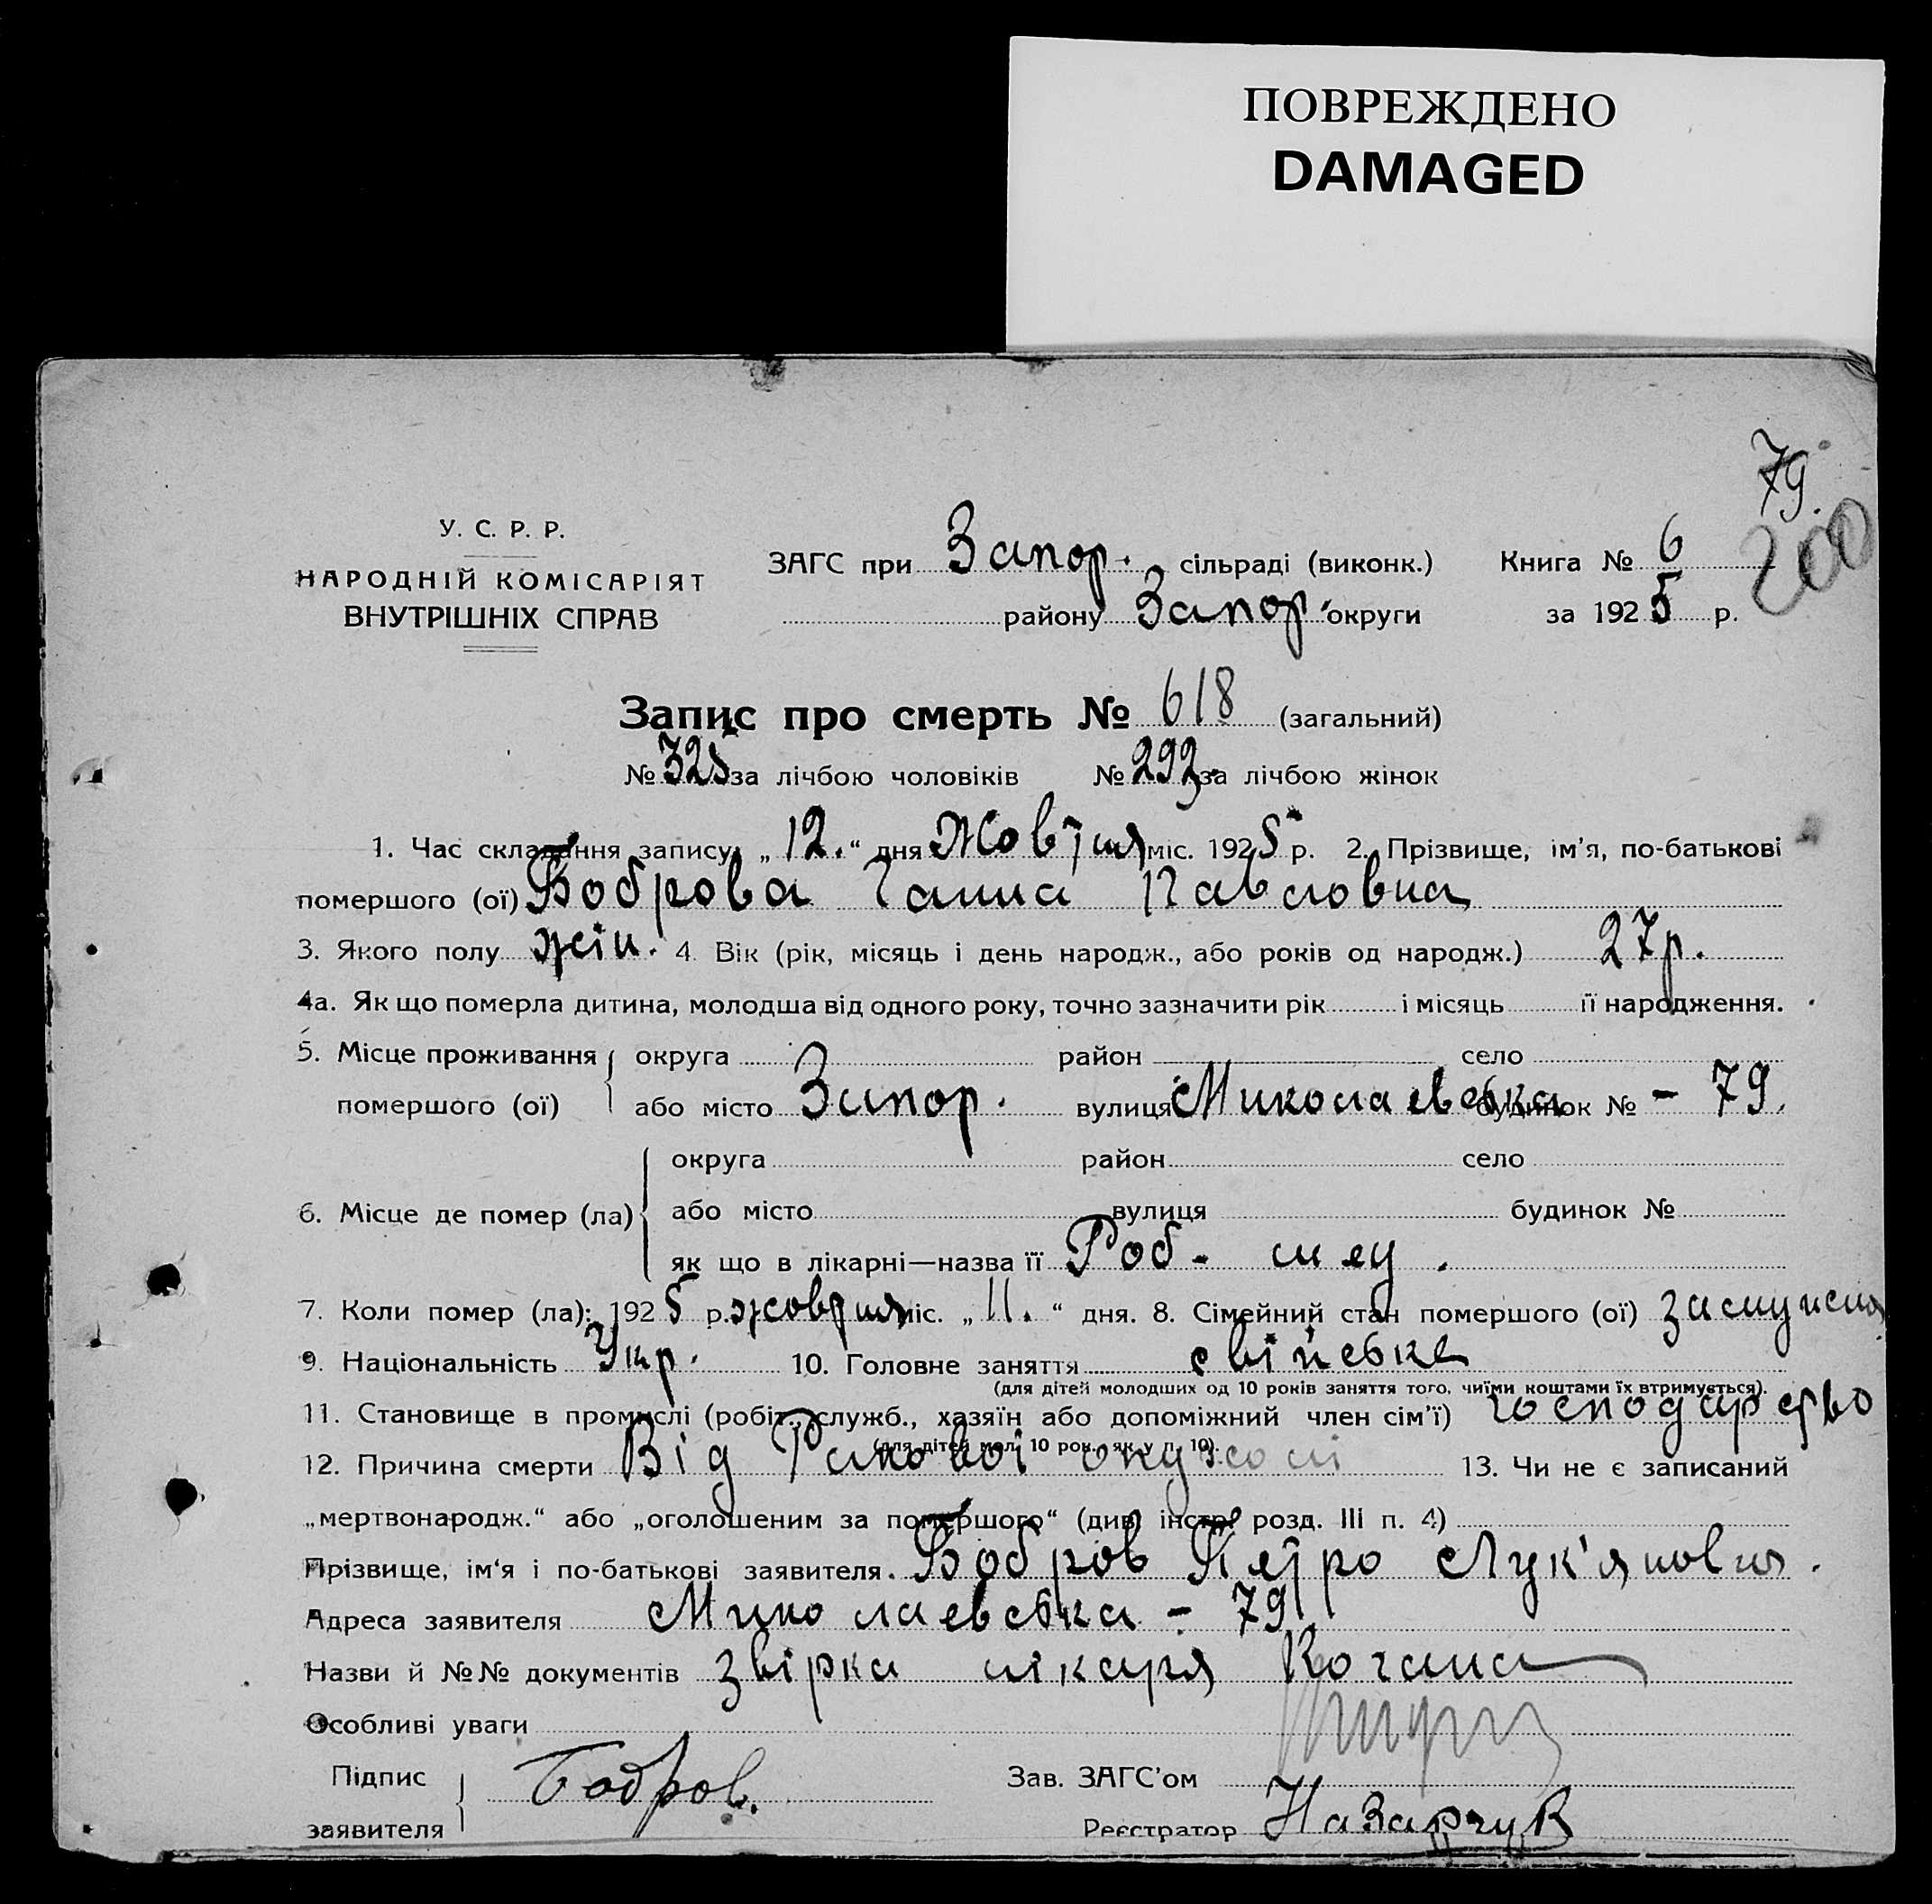 ПОВРЕЖДЕНО
DAMAGED
79.
200
У. С. Р. Р.
НАРОДНІЙ КОМІСАРІЯТ
ВНУТРІШНІХ СПРАВ
ЗАГС при Запор. сільраді (виконк.)
району Запор. округи
Книга № 6
за 1925 р.
Запис про смерть № 618 (загальний)
№ 325 за лічбою чоловіків № 292 за лічбою жінок
1. Час складання запису: „12.“ дня Жовтня міс. 1925 р. 2. Прізвище, ім’я, по-батькові
помершого (ої) Боброва Ганна Павловна
3. Якого полу жін. 4. Вік (рік, місяць і день народж., або років од народж.) 27р.
4а. Як що померла дитина, молодша від одного року, точно зазначити рік і місяць її народження.
5. Місце проживання помершого (ої) округа район село
або місто Запор. вулиця Миколаевська будинок № – 79.
6. Місце де помер (ла) округа район село
або місто вулиця будинок №
як що в лікарні—назва її Роб-
7. Коли помер (ла): 1925 р. жовтня міс. „11.“ дня. 8. Сімейний стан помершого (ої) замужня
9. Національність Укр. 10. Головне заняття свійське
(для дітей молодших од 10 років заняття того, чиїми коштами їх втримується).
11. Становище в промислі (робіт., служб., хазяїн або допоміжний член сім’ї) господарство
(для дітей мол. 10 рок. як у п. 10).
12. Причина смерти Від 13. Чи не є записаний
„мертвонародж.“ або „оголошеним за помершого“ (див. інстр. розд. III п. 4)
Прізвище, ім‘я і по-батькові заявителя. Бобров Петро Лук'янович.
Адреса заявителя Миколаевська – 79
Назви й №№ документів звірка лікаря Когана
Особливі уваги
Підпис заявителя Бобров.
Зав. ЗАГС’ом
Реєстратор Назарчук